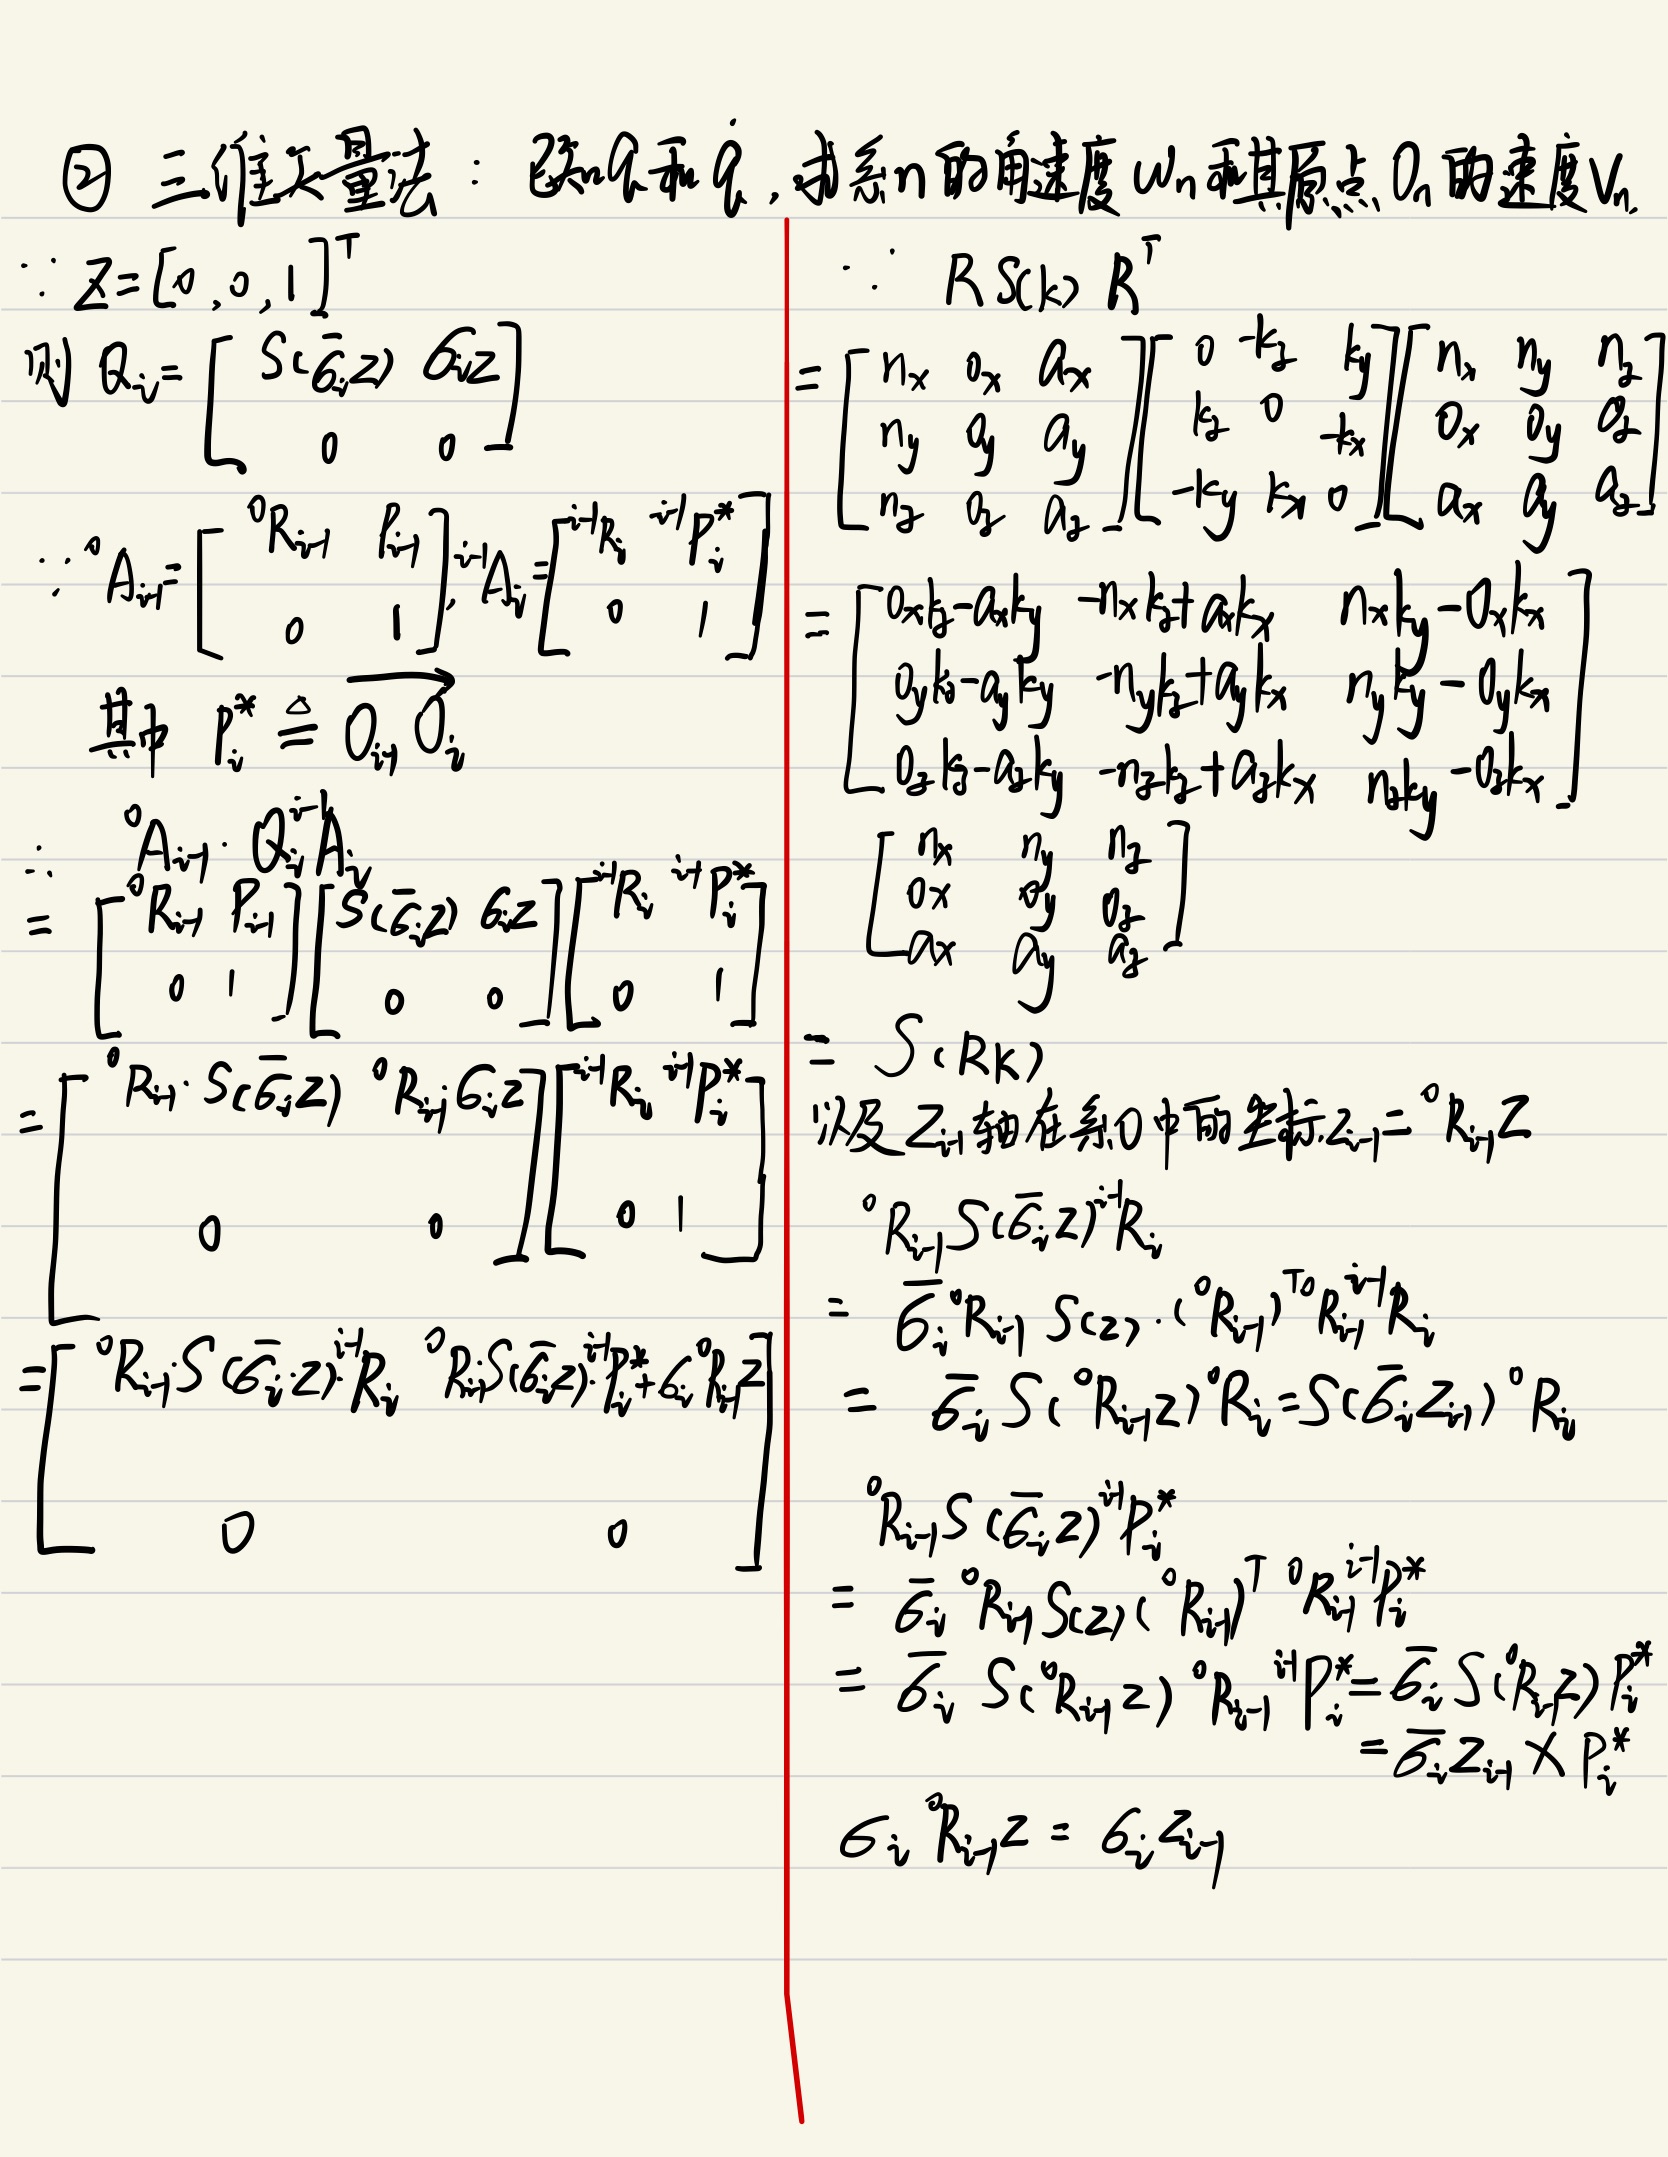 ② 三维矢量法：已知q和q̇,求系n的角速度ωn和其原点On的速度Vn.
∵ Z=[0,0,1]ᵀ
则 Qi= [ S(σ̄iZ) σiZ
0 0 ]
∵ ⁰Ai-1= [ ⁰Ri-1 Pi-1 ], ⁱ⁻¹Ai= [ ⁱ⁻¹Ri ⁱ⁻¹Pi*
0 1 ] 0 1 ]
其中 Pi* ≜ Oi-1Oi→
∴ ⁰Ai-1·Qi ⁱ⁻¹Ai
= [ ⁰Ri-1 Pi-1 ] [ S(σ̄iZ) σiZ ] [ ⁱ⁻¹Ri ⁱ⁻¹Pi* ]
0 1 0 0 0 1
= [ ⁰Ri-1·S(σ̄iZ) ⁰Ri-1σiZ ] [ ⁱ⁻¹Ri ⁱ⁻¹Pi* ]
0 0 0 1
= [ ⁰Ri-1·S(σ̄i·Z)·ⁱ⁻¹Ri ⁰Ri-1S(σ̄iZ)·ⁱ⁻¹Pi*+σi⁰Ri-1Z ]
0 0
∵ R S(k) Rᵀ
= [ nx ox ax ] [ 0 -kz ky ] [ nx ny nz ]
ny oy ay kz 0 -kx ox oy oz
nz oz az -ky kx 0 ax ay az
= [ oxkz-axky -nxkz+axkx nxky-oxkx
oykz-ayky -nykz+aykx nyky-oykx
ozkz-azky -nzkz+azkx nzky-ozkx ]
[ nx ny nz
ox oy oz
ax ay az ]
= S(Rk)
以及Zi-1轴在系0中的坐标Zi-1=⁰Ri-1Z
⁰Ri-1S(σ̄iZ)ⁱ⁻¹Ri
= σ̄i⁰Ri-1 S(Z)·(⁰Ri-1)ᵀ⁰Ri-1ⁱ⁻¹Ri
= σ̄iS(⁰Ri-1Z)⁰Ri=S(σ̄iZi-1)⁰Ri
⁰Ri-1S(σ̄iZ)ⁱ⁻¹Pi*
= σ̄i⁰Ri-1S(Z)(⁰Ri-1)ᵀ ⁰Ri-1ⁱ⁻¹Pi*
= σ̄i S(⁰Ri-1Z) ⁰Ri-1ⁱ⁻¹Pi*=σ̄iS(⁰Ri-1Z)Pi*
=σ̄iZi-1×Pi*
σi⁰Ri-1Z=σiZi-1